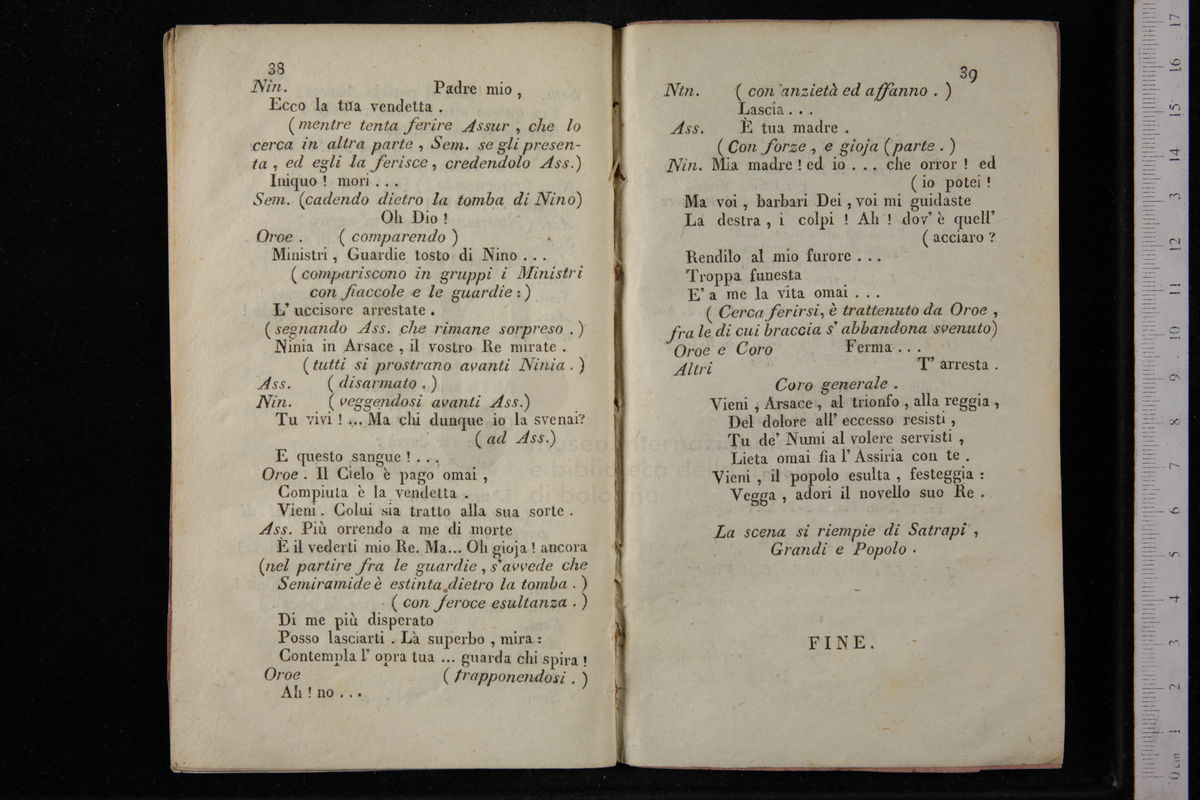 38
Nin. Padre mio ,
Ecco la tua vendetta .
( mentre tenta ferire Assur , che lo
cerca in altra parte , Sem. se gli presen-
ta , ed egli la ferisce , credendolo Ass.)
Iniquo ! mori . . .
Sem. (cadendo dietro la tomba di Nino)
Oh Dio !
Oroe . ( comparendo )
Ministri , Guardie tosto di Nino . . .
( compariscono in gruppi i Ministri
con fiaccole e le guardie : )
L' uccisore arrestate .
( segnando Ass. che rimane sorpreso . )
Ninia in Arsace , il vostro Re mirate .
( tutti si prostrano avanti Ninia . )
Ass. ( disarmato . )
Nin. ( veggendosi avanti Ass.)
Tu vivi ! ... Ma chi dunque io la svenai?
( ad Ass.)
E questo sangue ! . . .
Oroe . Il Cielo è pago omai ,
Compiuta è la vendetta .
Vieni . Colui sia tratto alla sua sorte .
Ass. Più orrendo a me di morte
È il vederti mio Re. Ma... Oh gioja ! ancora
(nel partire fra le guardie , s'avvede che
Semiramide è estinta dietro la tomba . )
( con feroce esultanza . )
Di me più disperato
Posso lasciarti . Là superbo , mira :
Contempla l' opra tua ... guarda chi spira !
Oroe ( frapponendosi . )
Ah ! no . . .
39
Ntn. ( con anzietà ed affanno . )
Lascia . . .
Ass. È tua madre .
( Con forze , e gioja ( parte . )
Nin. Mia madre ! ed io . . . che orror ! ed
( io potei !
Ma voi , barbari Dei , voi mi guidaste
La destra , i colpi ! Ah ! dov' è quell'
( acciaro ?
Rendilo al mio furore . . .
Troppa funesta
E' a me la vita omai . . .
( Cerca ferirsi, è trattenuto da Oroe ,
fra le di cui braccia s' abbandona svenuto)
Oroe e Coro Ferma . . .
Altri T' arresta .
Coro generale .
Vieni , Arsace , al trionfo , alla reggia ,
Del dolore all' eccesso resisti ,
Tu de' Numi al volere servisti ,
Lieta omai fia l' Assiria con te .
Vieni , il popolo esulta , festeggia :
Vegga , adori il novello suo Re .
La scena si riempie di Satrapi ,
Grandi e Popolo .
FINE.